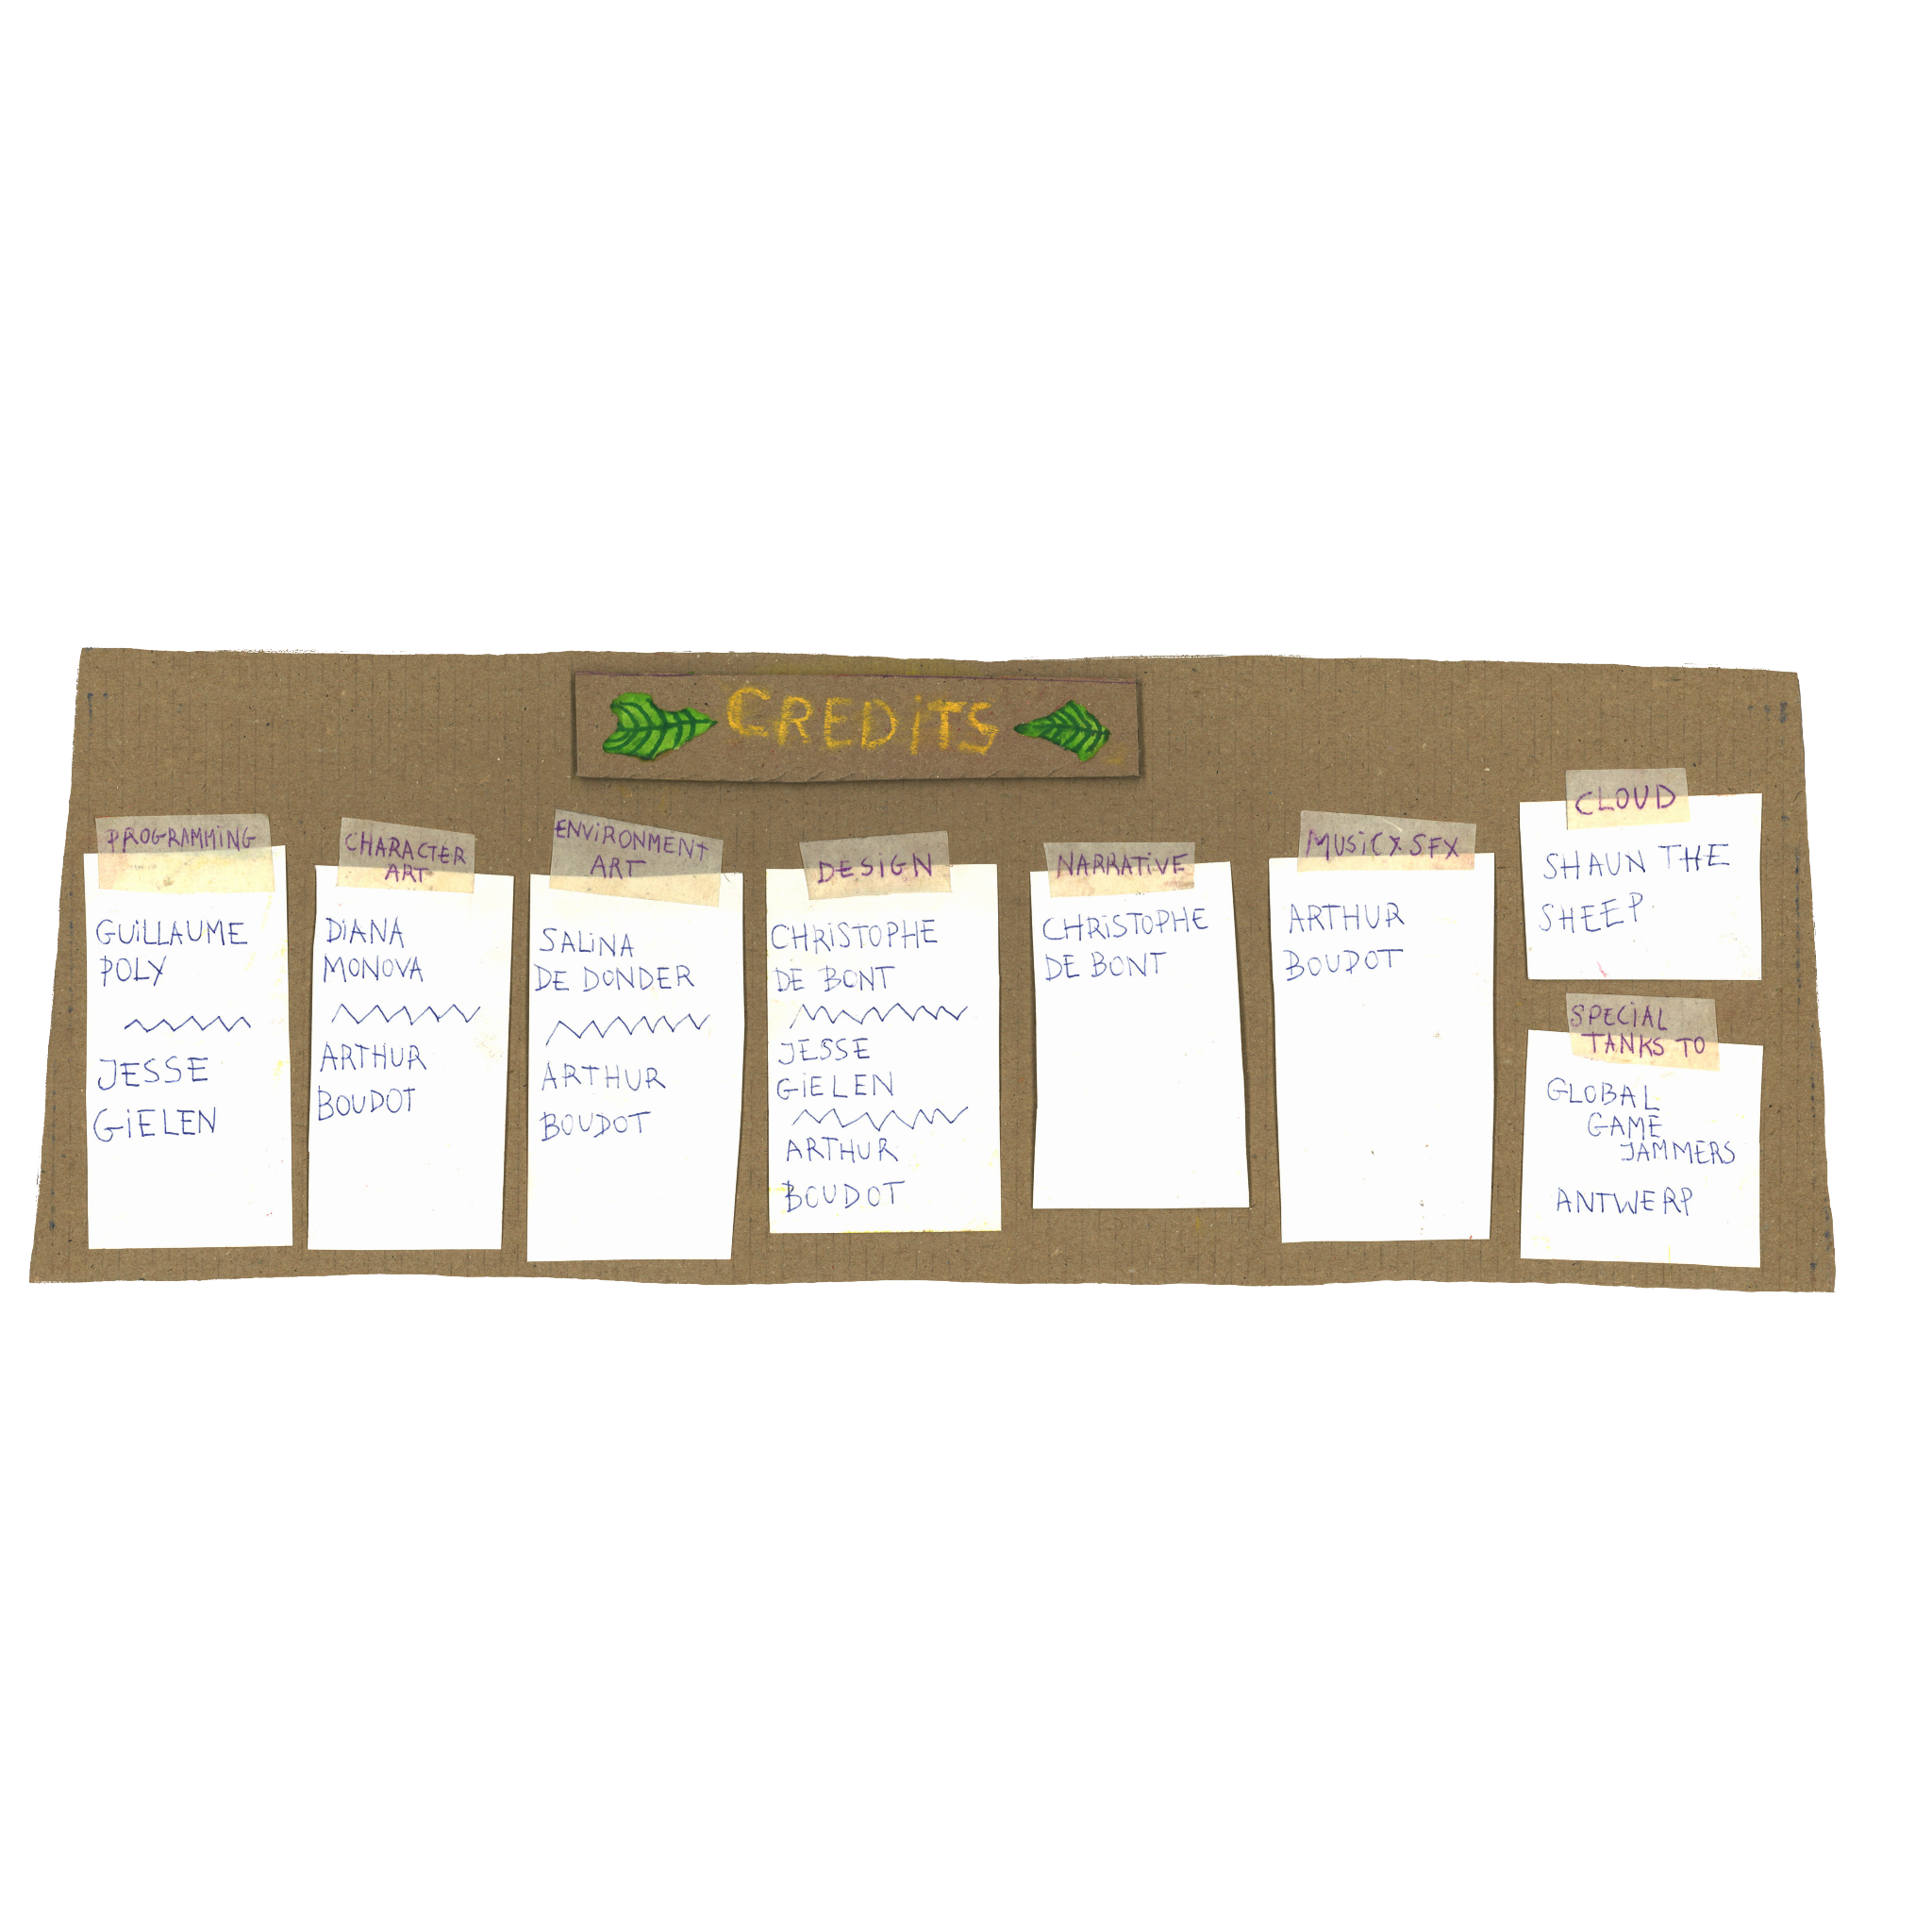 CREDiTS
PROGRAMMiNG
GUiLLAUME
POLY
JESSE
GiELEN
CHARACTER
ART
DiANA
MONOVA
ARTHUR
BOUDOT
ENViRONMENT
ART
SALiNA
DE DONDER
ARTHUR
BOUDOT
DESiGN
CHRiSTOPHE
DE BONT
JESSE
GiELEN
ARTHUR
BOUDOT
NARRATiVE
CHRiSTOPHE
DE BONT
MUSiC & SFX
ARTHUR
BOUDOT
CLOUD
SHAUN THE
SHEEP.
SPECiAL
TANKS TO
GLOBAL
GAME
JAMMERS
ANTWERP